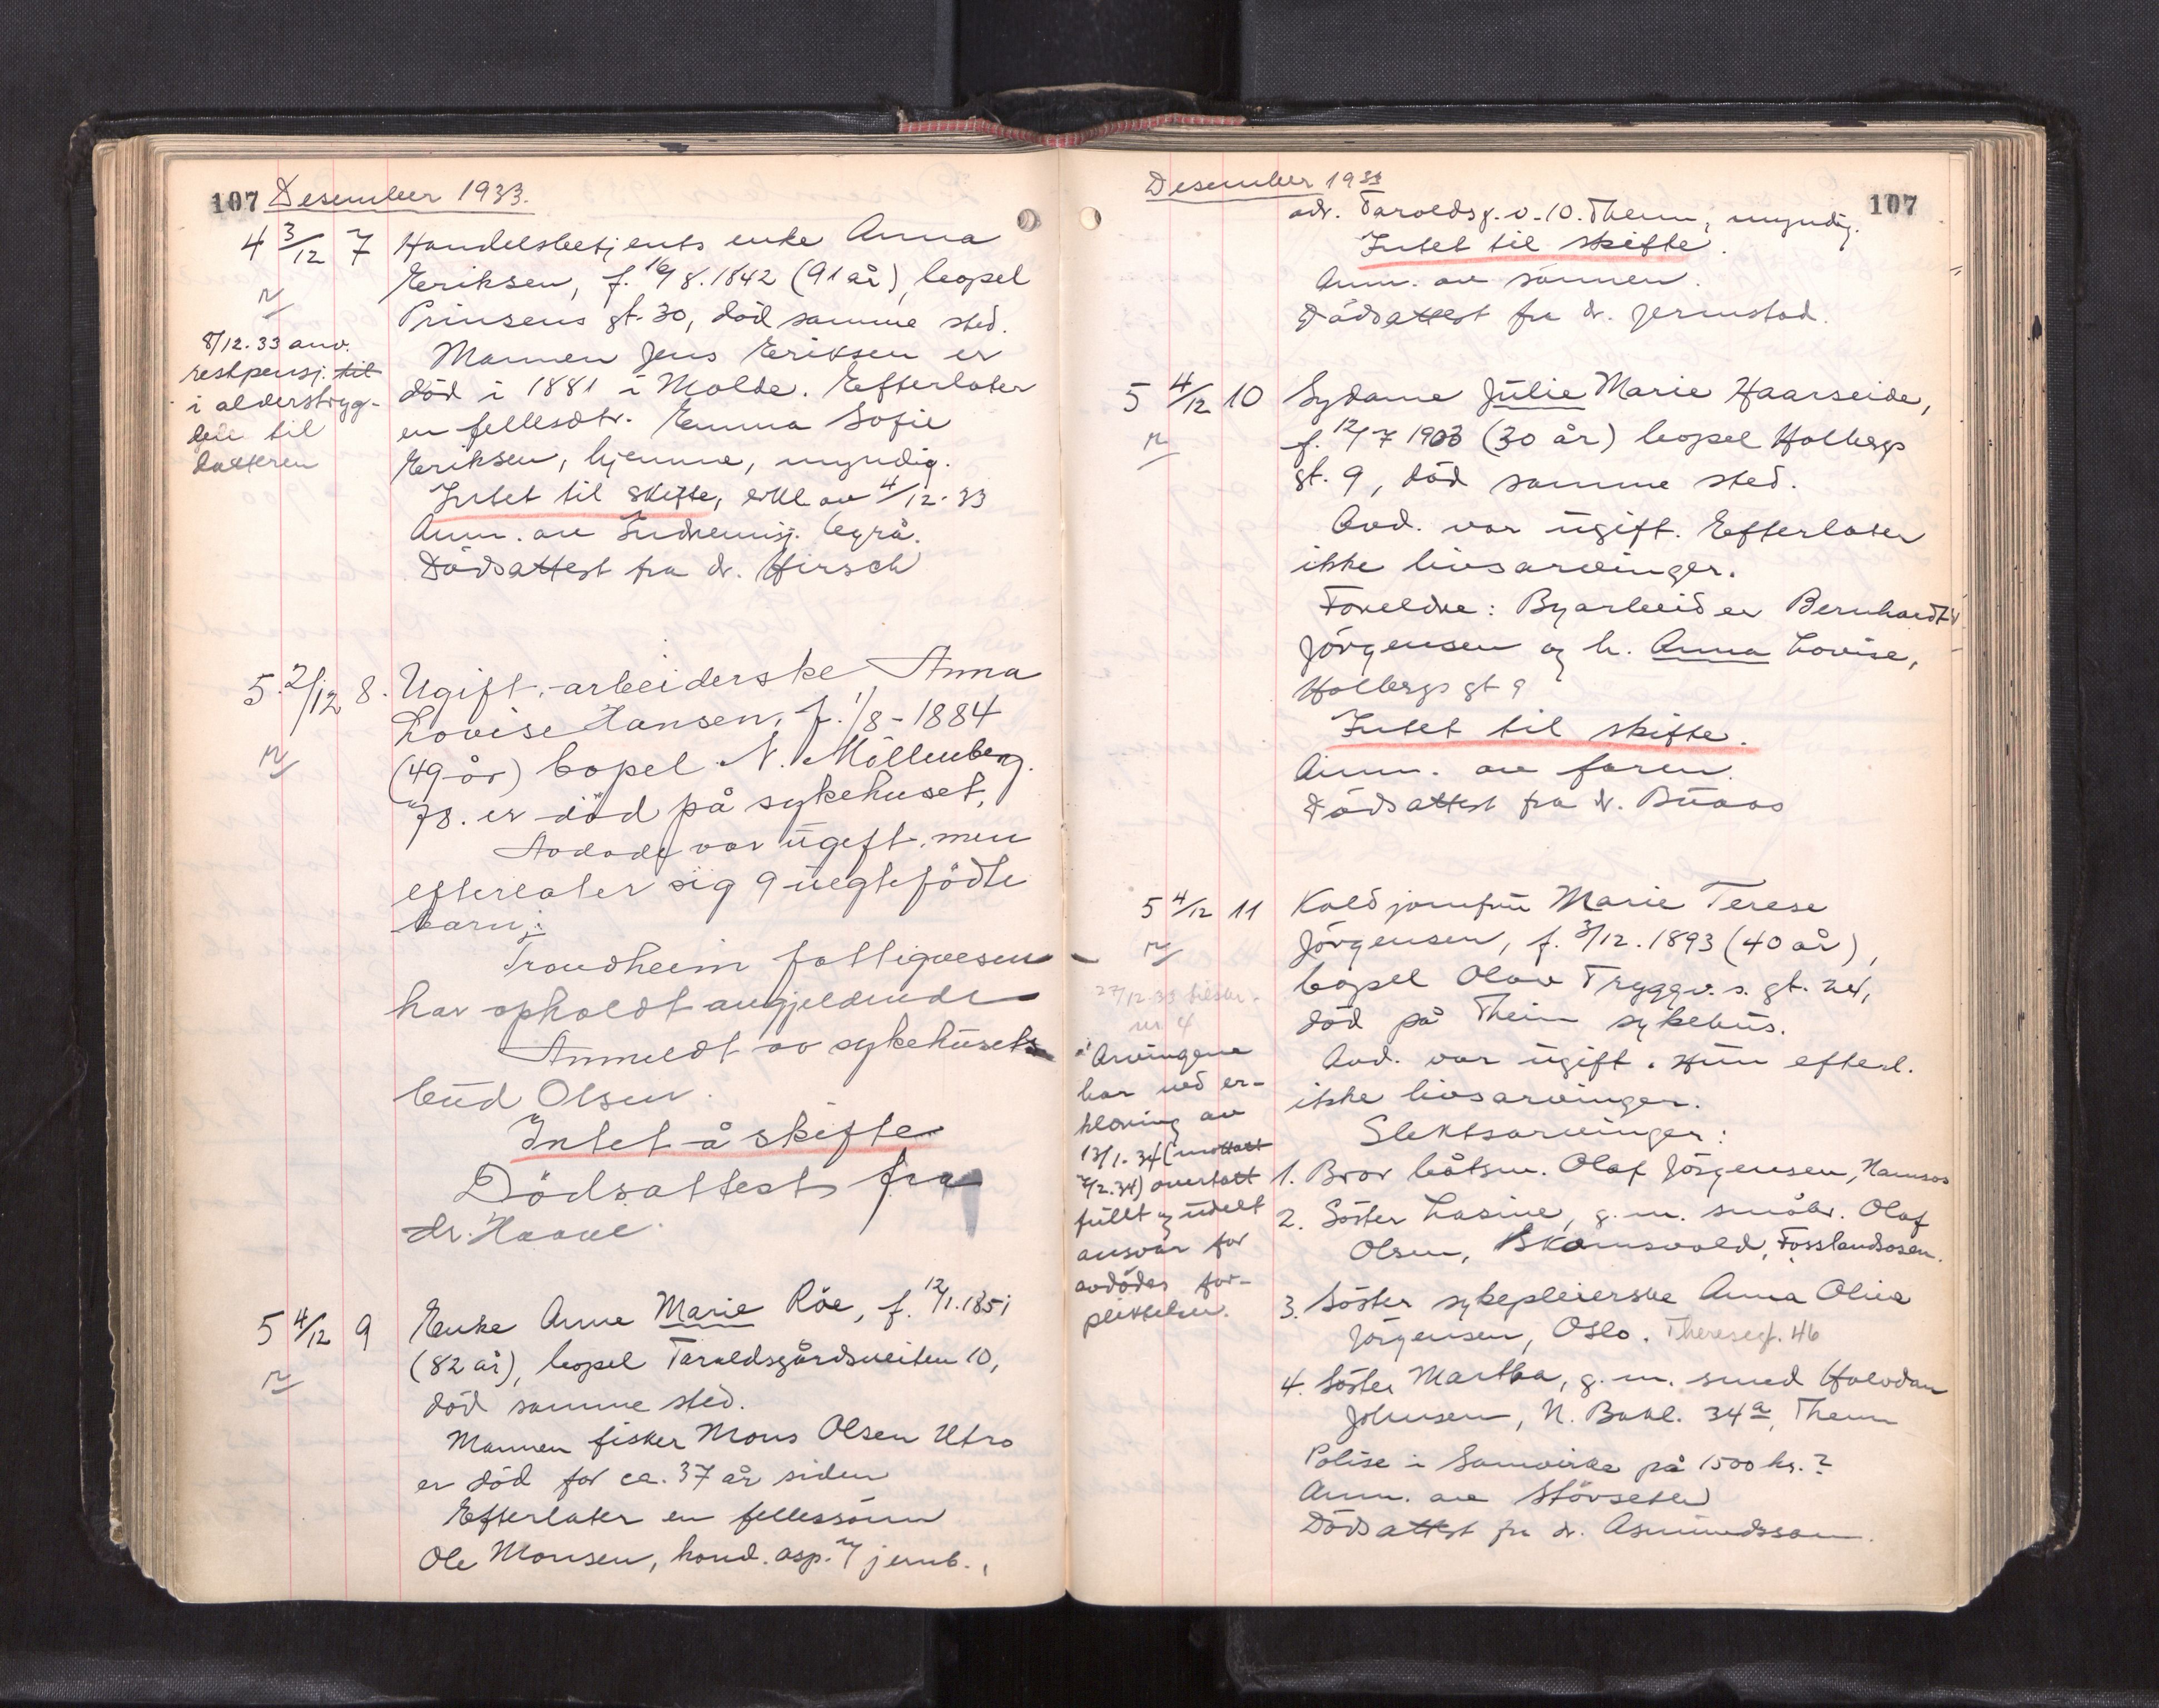 107 Desember 1933.
4 3/12 7 Handelsbetjents enke Anna
Eriksen, f. 16/8.1842 (91 år), bopel
Prinsens gt. 30, död samme sted.
Mannen Jens Eriksen er
död i 1881 i Molde. Efterlater
en fellesdtr. Emma Sofie
Eriksen, hjemme, myndig.
Intet til skifte, erkl av 4/12-33
Anm. av Indremisj. byrå.
Dödsattest fra dr. Hirsch
8/12.33 anv.
restpensj. til
i alderstryg-
den til
datteren
5 2/12 8. Ugift, arbeiderske Anna
Lovise Hansen, f. 1/8-1884
(49 år) bopel N. Möllenberg
78. er död på sykehuset.
Avdöde var ugift, men
efterlater sig 9 uegtefödte
barn;
Trondheim fattigvesen
har opholdt angjeldende
Anmeldt av sykehusets
bud Olsen.
Intet å skifte
Dödsattest fra
dr. Haave.
5 4/12 9 Enke Anne Marie Röe, f. 12/1.1851
(82 år), bopel Taraldsgårdsveiten 10,
död samme sted.
Mannen fisker Mons Olsen Utro
er död for ca. 37 år siden
Efterlater en fellessönn
Ole Monsen, kond. asp. v/ jernb.,
Desember 1933
107
adr. Taraldsg. v. 10. Them, myndig.
Intet til skifte.
Anm. av sönnen.
Dödsattest fra dr. Jermstad.
5 4/12 10 Sydame Julie Marie Haarseide,
f. 12/7 1903 (30 år) bopel Holbergs
gt. 9, död samme sted.
Avd. var ugift. Efterlater
ikke livsarvinger.
Foreldre: Byarbeider Bernhardt
Jörgensen og h. Anna Lovise,
Holbergs gt 9
Intet til skifte.
Anm. av faren.
Dödsattest fra dr. Buaas
5 4/12 11 Koldjomfru Marie Terese
Jörgensen, f. 3/12.1893 (40 år),
bopel Olav Tryggv. s. gt. 24,
död på Theim sykehus.
Avd. var ugift. Hun efterl.
ikke livsarvinger.
Slektsarvinger:
1. Bror båtsm. Olaf Jörgensen, Namsos
2. Söster Lasine, g.m. småbr. Olaf
Olsen, Skomsvold, Fosslandsosen.
3. Söster sykepleierske Anna Olise
Jörgensen, Oslo. Theresegt. 46
4. Söster Martha, g.m. smed Halvdan
Johnsen, N. Bakl. 34a, Them
Polise i Samvirke på 1500 kr.?
Anm. av Stövseth
Dödsattest fra dr. Asmundsson.
27/12.33
nr 4
Arvingene
har ved er-
klæring av
13/1-34 (mottatt
2/2.34) overtatt
fullt og udelt
ansvar for
avdödes for-
pliktelser.